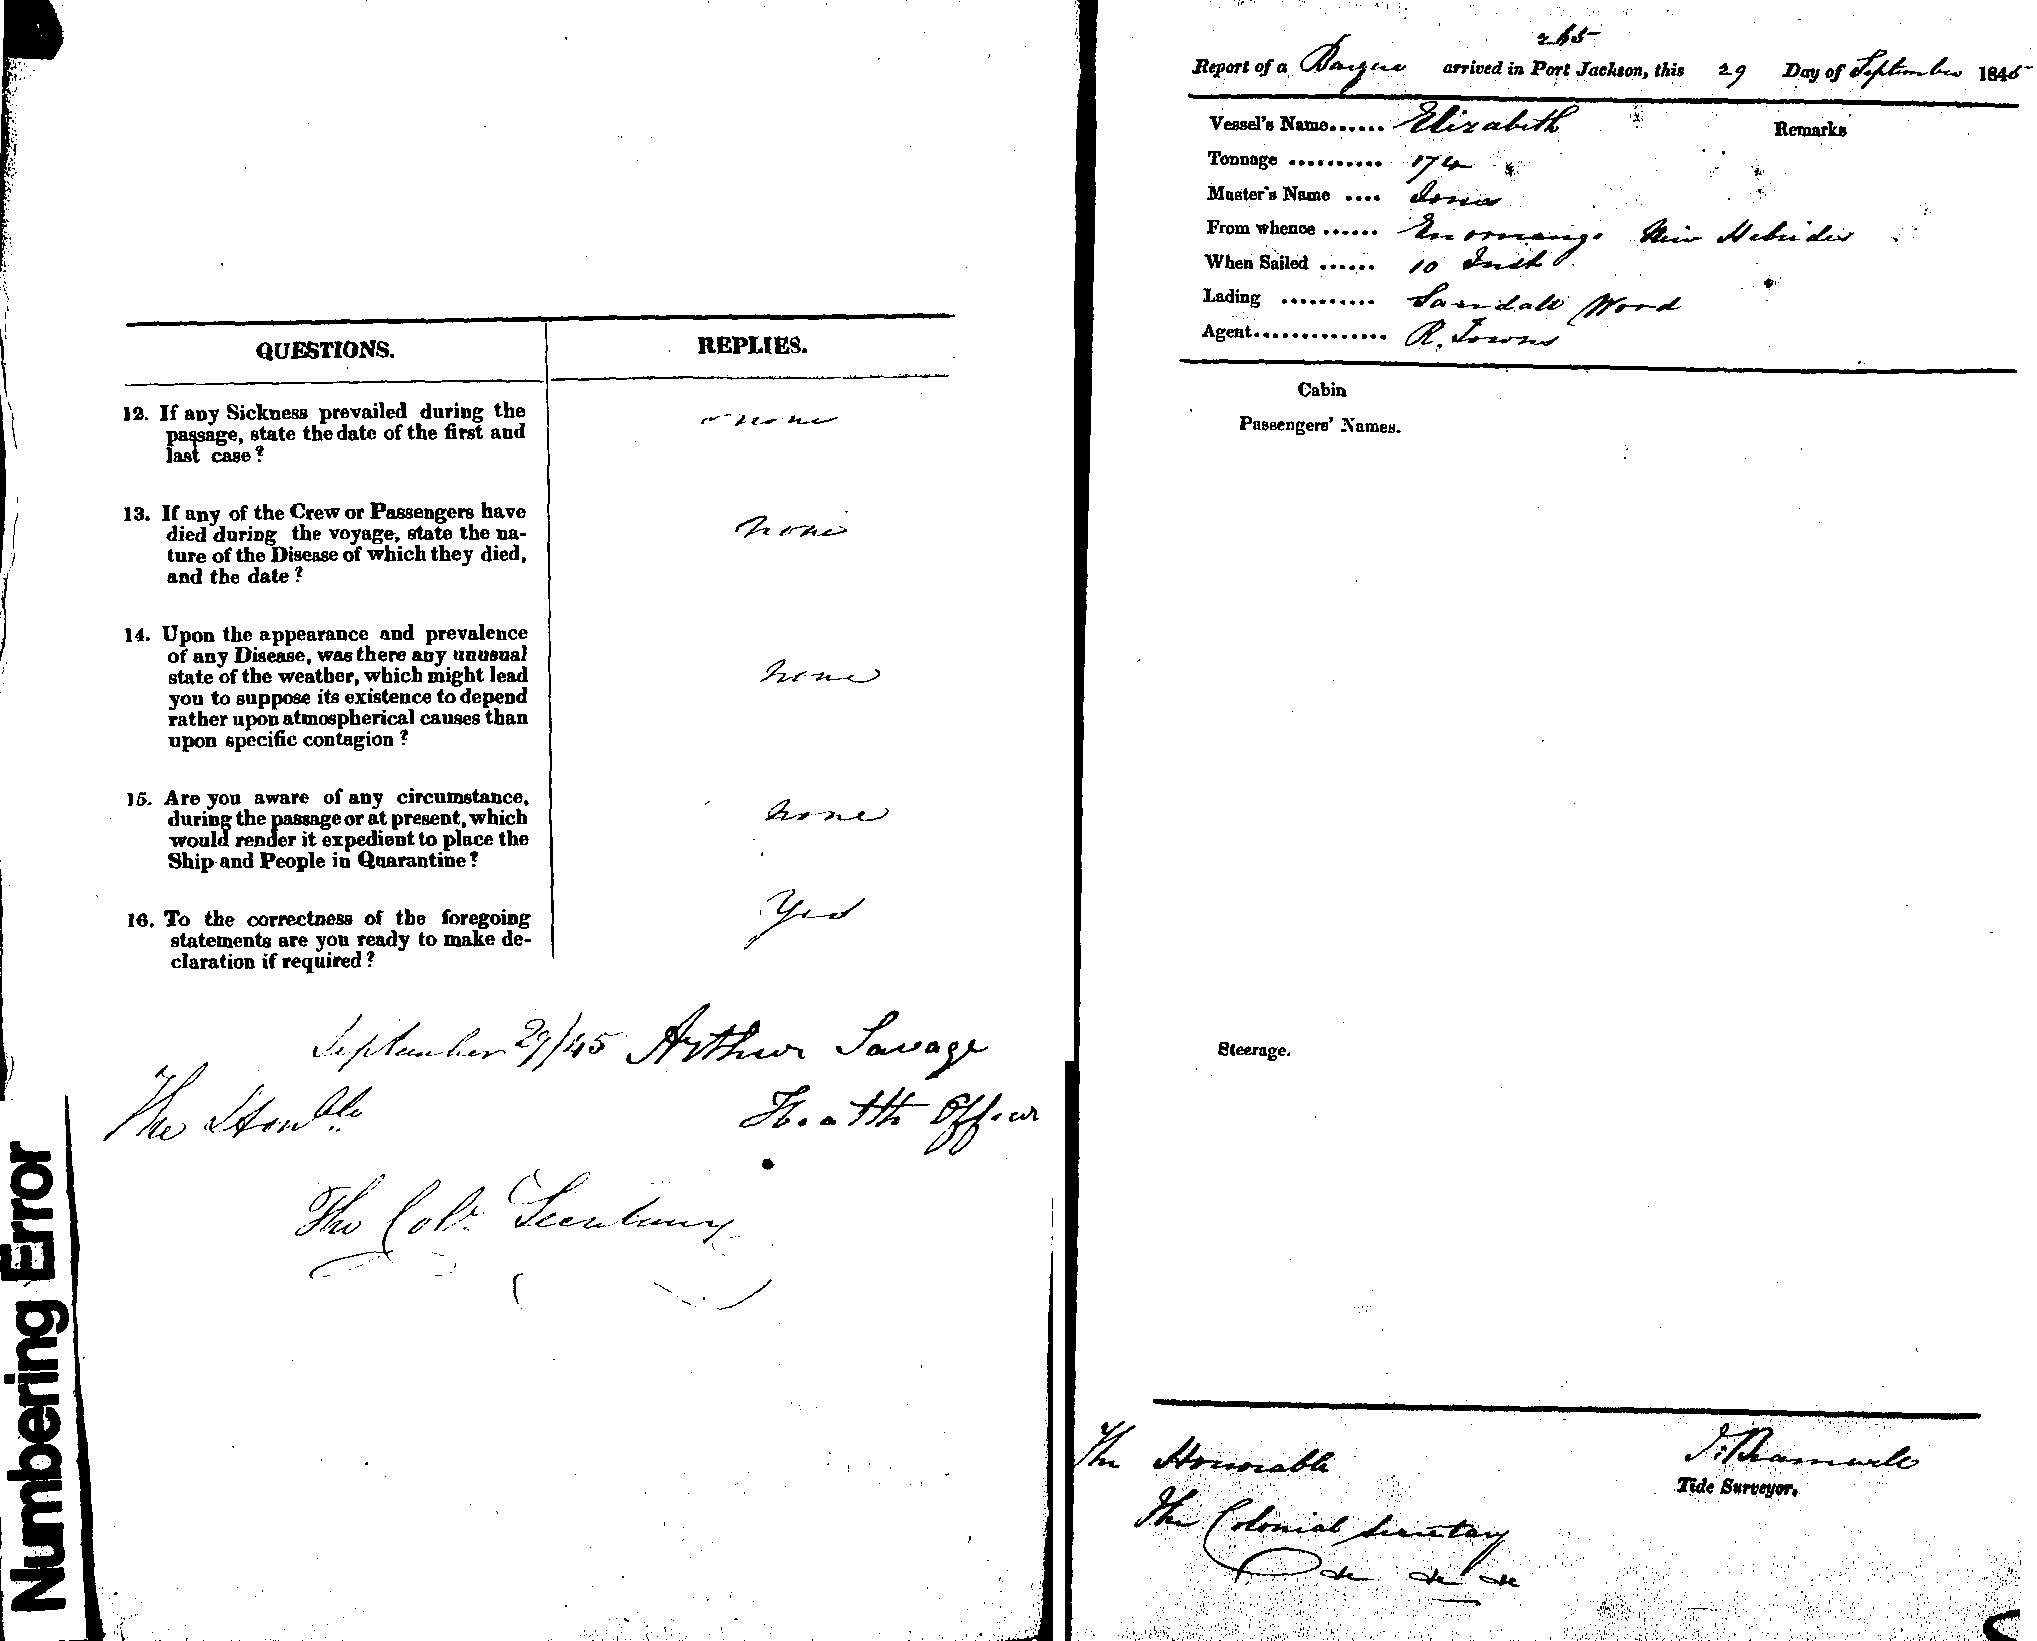 QUESTIONS.
REPLIES.
12. If any Sickness prevailed during the
passage, state the date of the first and
last case?
none
13. If any of the Crew or Passengers have
died during the voyage, state the na-
ture of the Disease of which they died,
and the date?
none
14. Upon the appearance and prevalence
of any Disease, was there any unusual
state of the weather, which might lead
you to suppose its existence to depend
rather upon atmospherical causes than
upon specific contagion?
none
15. Are you aware of any circumstance,
during the passage or at present, which
would render it expedient to place the
Ship and People in Quarantine?
none
16. To the correctness of the foregoing
statements are you ready to make de-
claration if required?
Yes
September 29/45 Arthur Savage
Health Officer
The Honble
The Coll. Secretary
Numbering Error
265
Report of a Barque arrived in Port Jackson, this 29 Day of September 1845
Vessel's Name...... Elizabeth
Remarks
Tonnage .......... 174
Master's Name .... Jones
From whence ...... New Hebrides
When Sailed ...... 10 Inst
Lading .......... Sandall Wood
Agent.............. R. Towns
Cabin
Passengers' Names.
Steerage.
The Honorable
The Colonial Secretary
&c &c &c
J. Bramwell
Tide Surveyor.